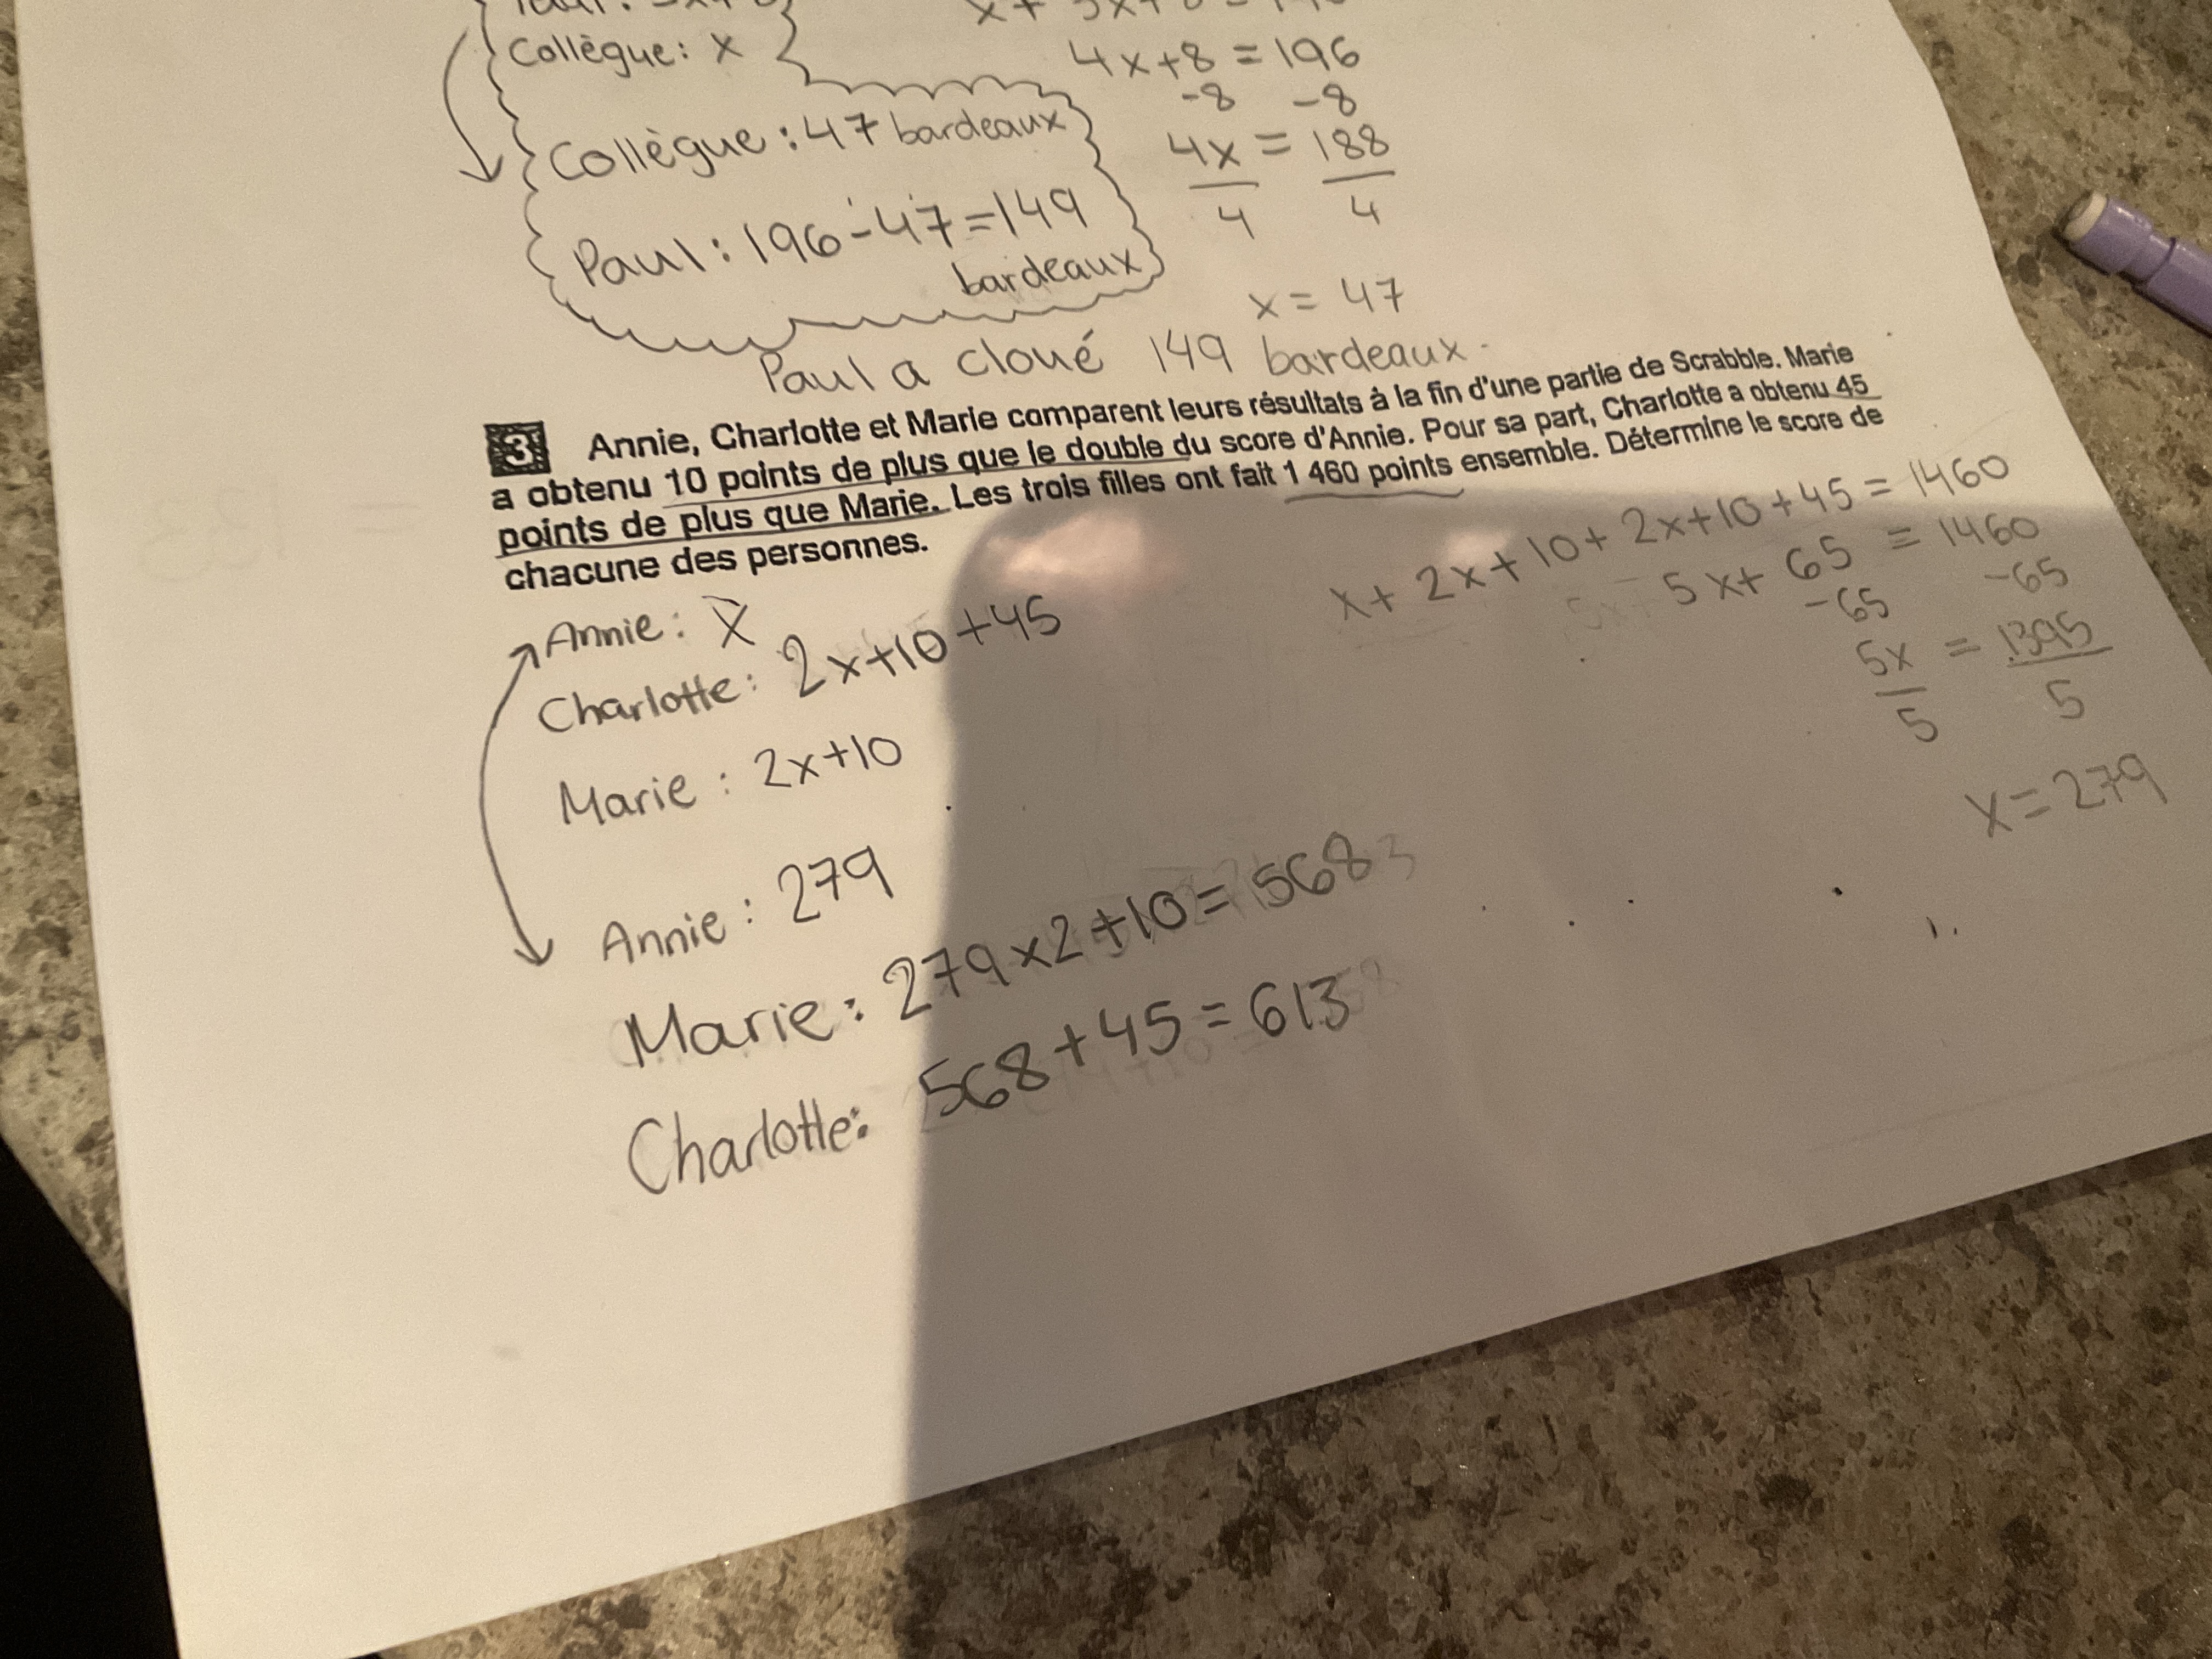 Collègue: x
4x+8 = 196
-8 -8
Collègue : 47 bardeaux
4x = 188
4 4
Paul : 196-47=149
bardeaux
x = 47
Paul a cloué 149 bardeaux.
3 Annie, Charlotte et Marie comparent leurs résultats à la fin d'une partie de Scrabble. Marie
a obtenu 10 points de plus que le double du score d'Annie. Pour sa part, Charlotte a obtenu 45
points de plus que Marie. Les trois filles ont fait 1 460 points ensemble. Détermine le score de
chacune des personnes.
x + 2x + 10 + 2x+10+45 = 1460
5x+ 65 = 1460
-65 -65
5x = 1395
5 5
x = 279
Annie: x
Charlotte: 2x+10+45
Marie : 2x+10
Annie : 279
Marie: 279x2+10=568
Charlotte: 568+45=613